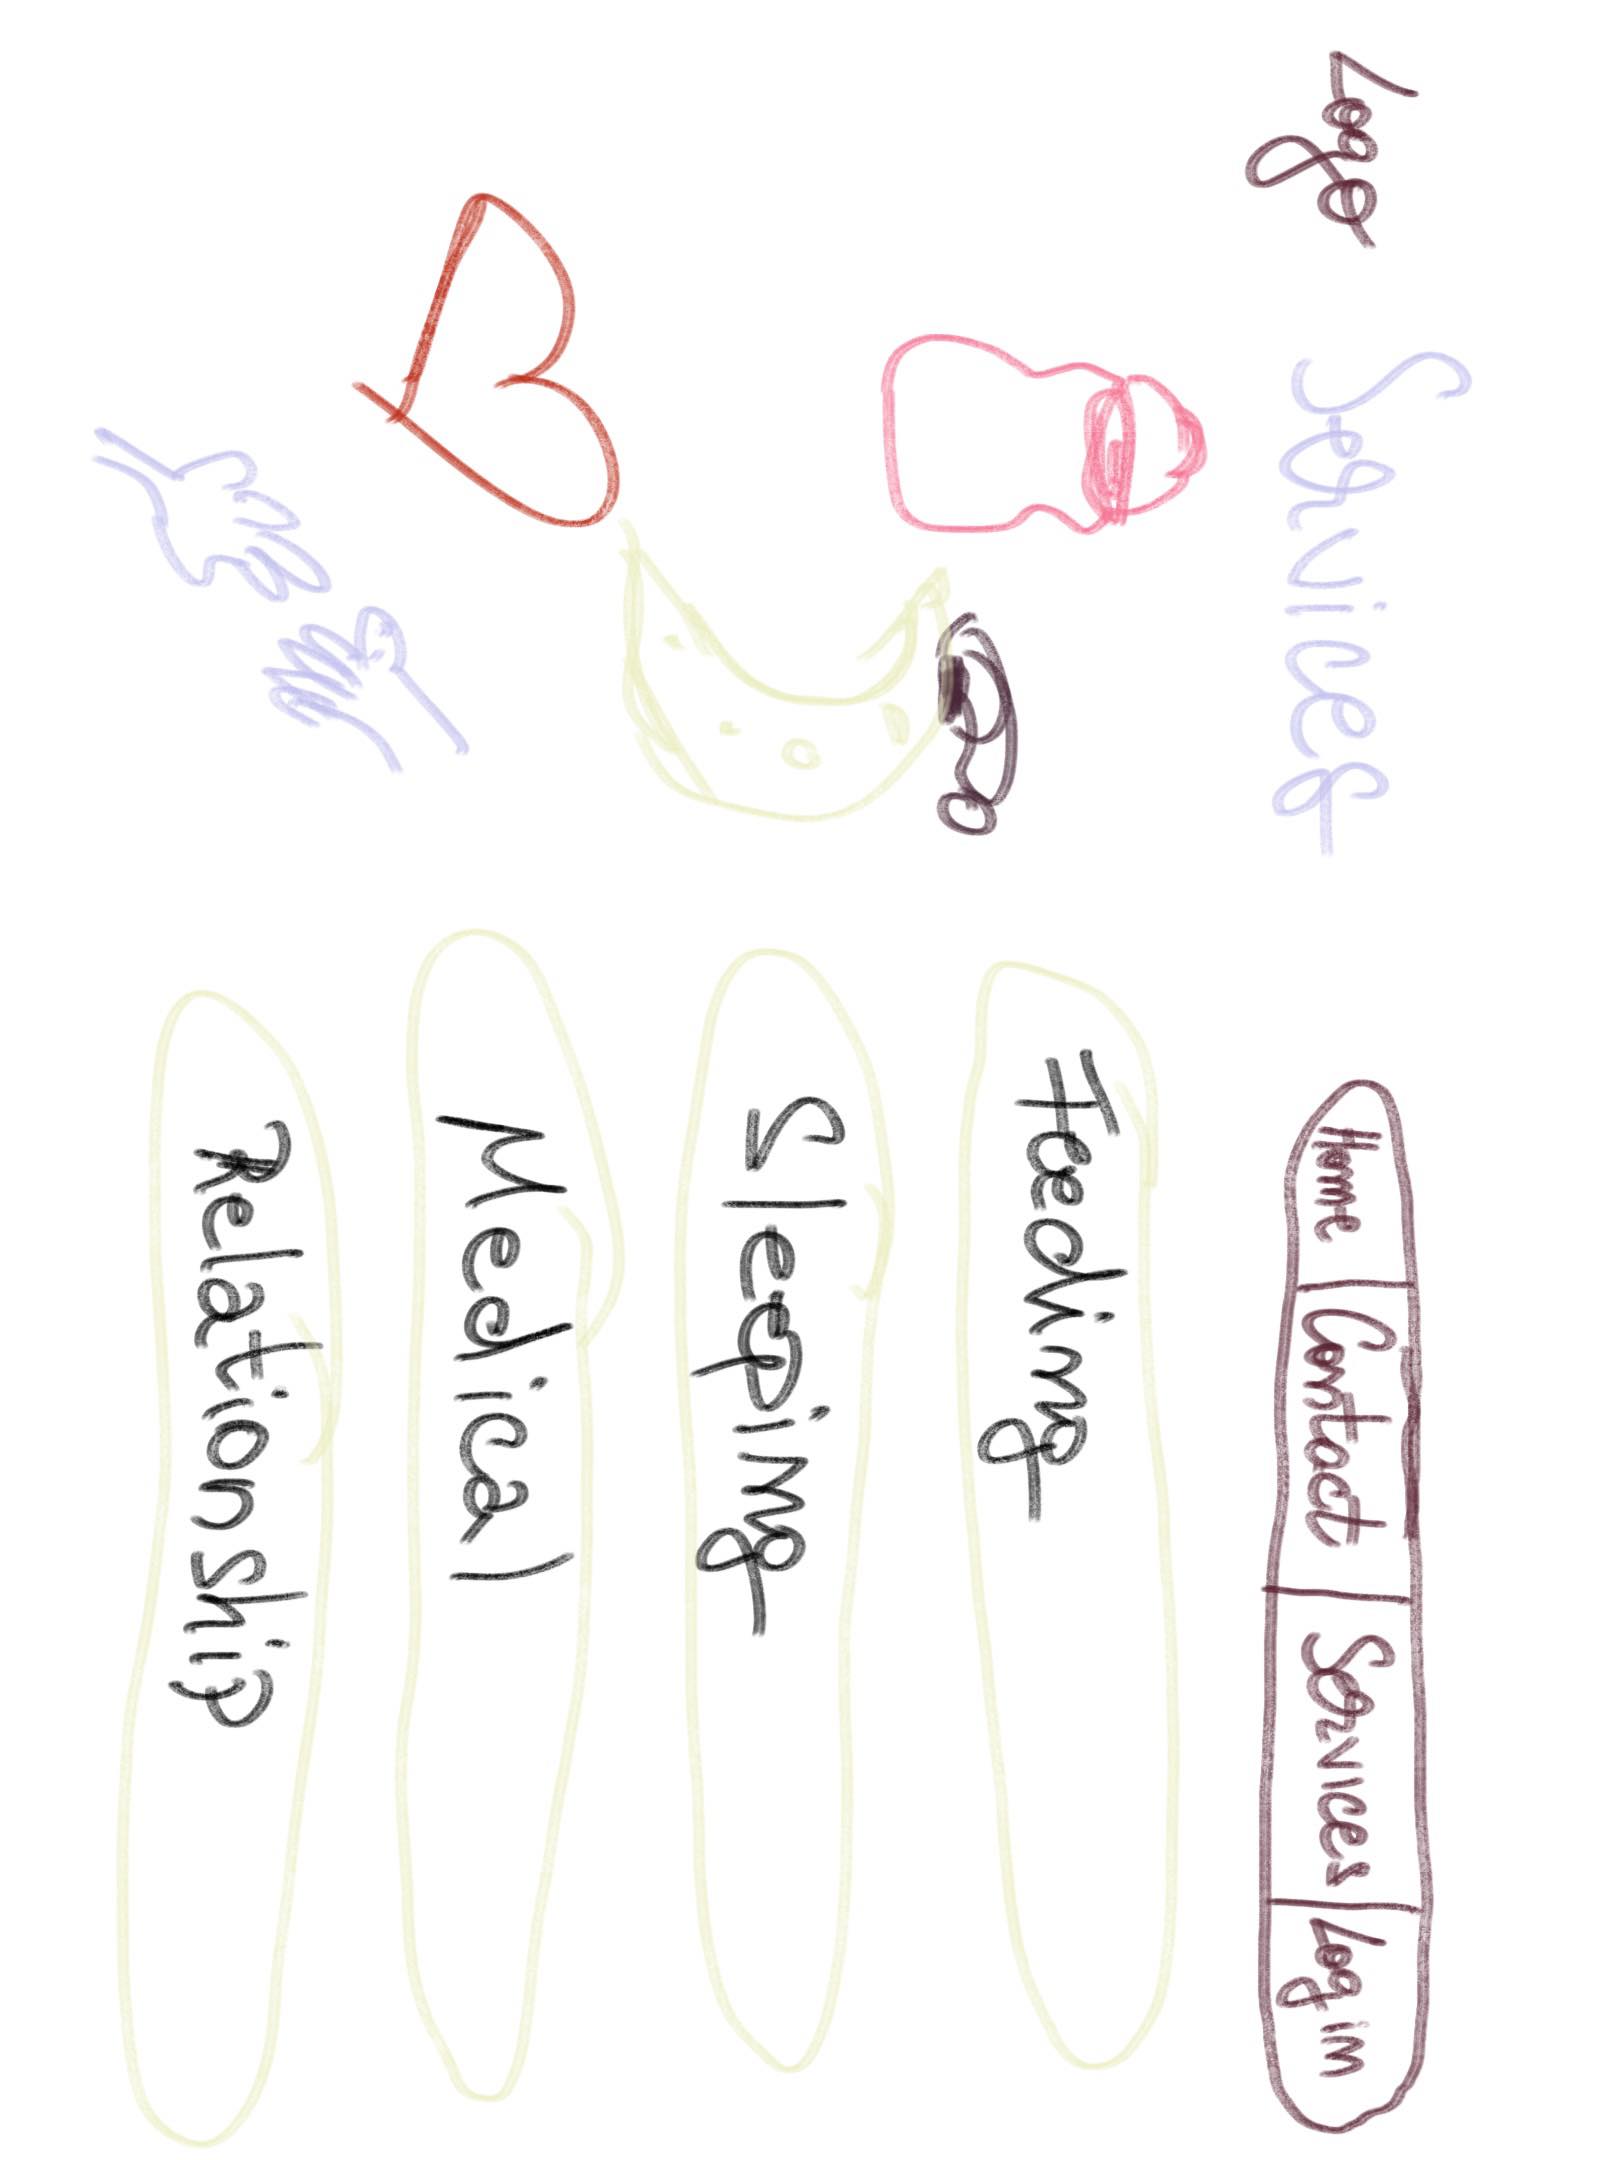 Logo Services Home Contact Services Log in
Feeding
Sleeping
Medical
Relationship